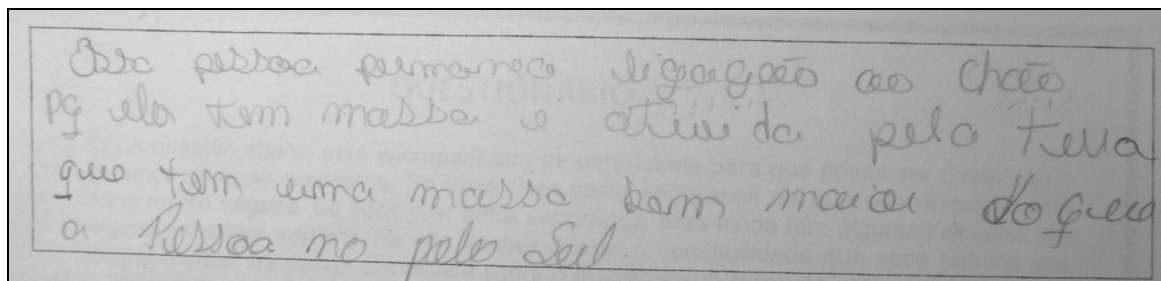 Essa pessoa permanece ligagação ao Chão
Pq ela tem massa e atuida pela terra
que tem uma massa bem maior do que
a Pessoa no polo Sul.